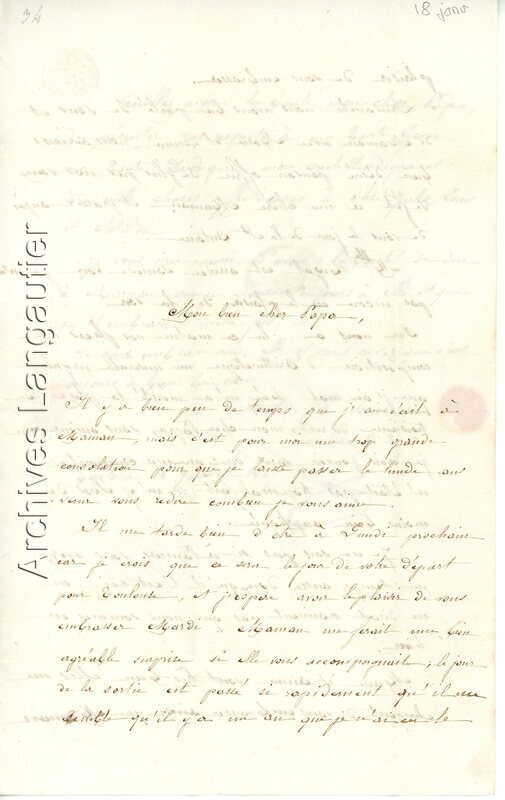 34
18 janv
Archives Langautier
Mon bien cher Papa,
Il y a bien peu de temps que j'ai écrit à
Maman, mais c'est pour moi une trop grande
consolation pour que je laisse passer le lundi sans
venir vous redire combien je vous aime.
Il me tarde bien d'être à Lundi prochain
car je crois que ce sera le jour de votre départ
pour Toulouse, et j'espère avoir le plaisir de vous
embrasser Mardi. Maman me ferait une bien
agréable surprise si elle vous accompagnait; le jour
de la sortie est passé si rapidement qu'il me
semble qu'il y a un an que je n'ai eu le